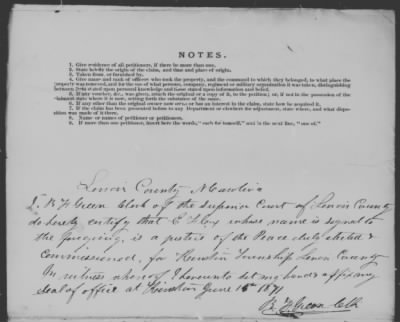 NOTES.
1. Give residence of all petitioners, if there be more than one.
2. State briefly the origin of the claim, and time and place of origin.
3. Taken from, or furnished by.
4. Give name and rank of officers who took the property, and the command to which they belonged; to what place the
property was removed, and for the use of what persons, company, regiment or military organization it was taken, distinguishing
between facts stated upon personal knowledge and those stated upon information and belief.
5. If any voucher, &c., was given, attach the original or a copy of it, to the petition; or, if not in the possession of the
claimant state where it is now, setting forth the substance of the same.
6. If any other than the original owner now owns or has an interest in the claim, state how he acquired it.
7. If the claim has been presented before to any Department or elsewhere for adjustment, state where, and what dispo-
sition was made of it there.
8. Name or names of petitioner or petitioners.
9. If more than one petitioner, insert here the words, "each for himself," and in the next line, "one of."
Lenoir County N Carolina
I, B F Green Clerk of the Superior Court of Lenoir County
do hereby certify that E F Cox whose name is signed to
the foregoing, is a justice of the Peace duly elected &
Commissioned, for Kinston Township Lenoir County
In witness whereof I hereunto set my hand & affix my
Seal of office at Kinston June 15th 1871
B. F. Green Clk